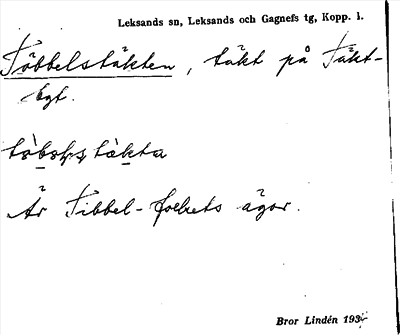 Leksands sn, Leksands och Gagnefs tg, Kopp. l.
Többelstäkten, täkt på Täkt-
bgt.
Är Tibbel-folkets ägor.
Bror Lindén 193